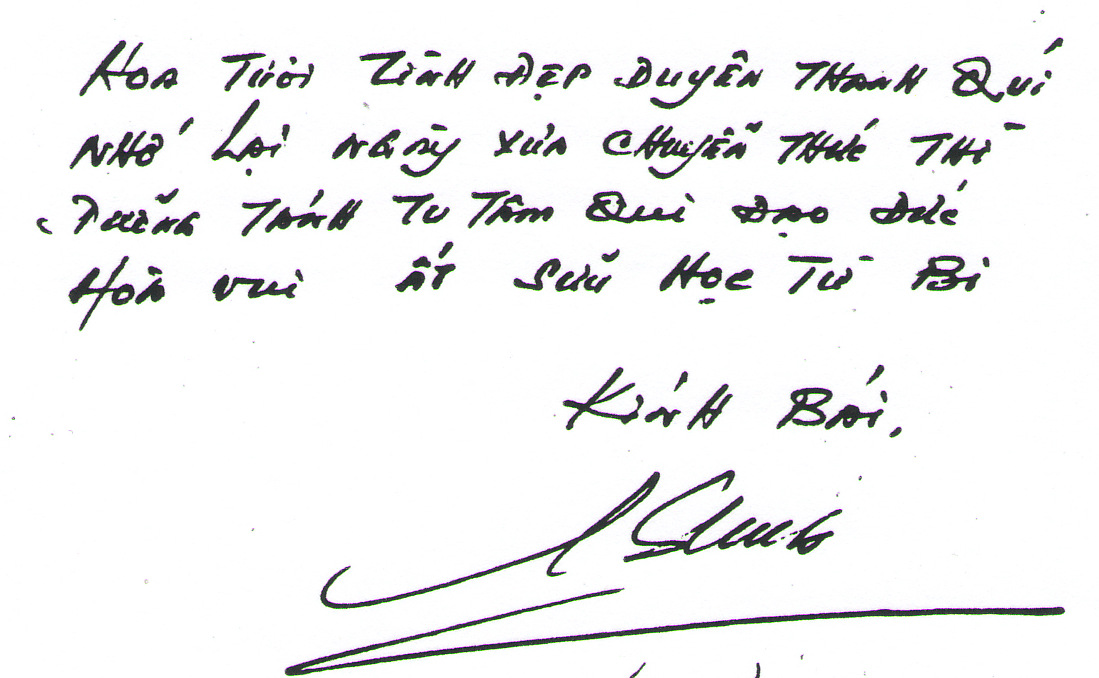 Hoa Tươi Tình Đẹp Duyên Thanh Quí
Nhớ Lại Ngày Xưa Chuyển Thức Thì
Dưỡng Tánh Tu Tâm Qui Đạo Đức
Hôn Vui Ất Sửu Học Từ Bi
Kính Bái,